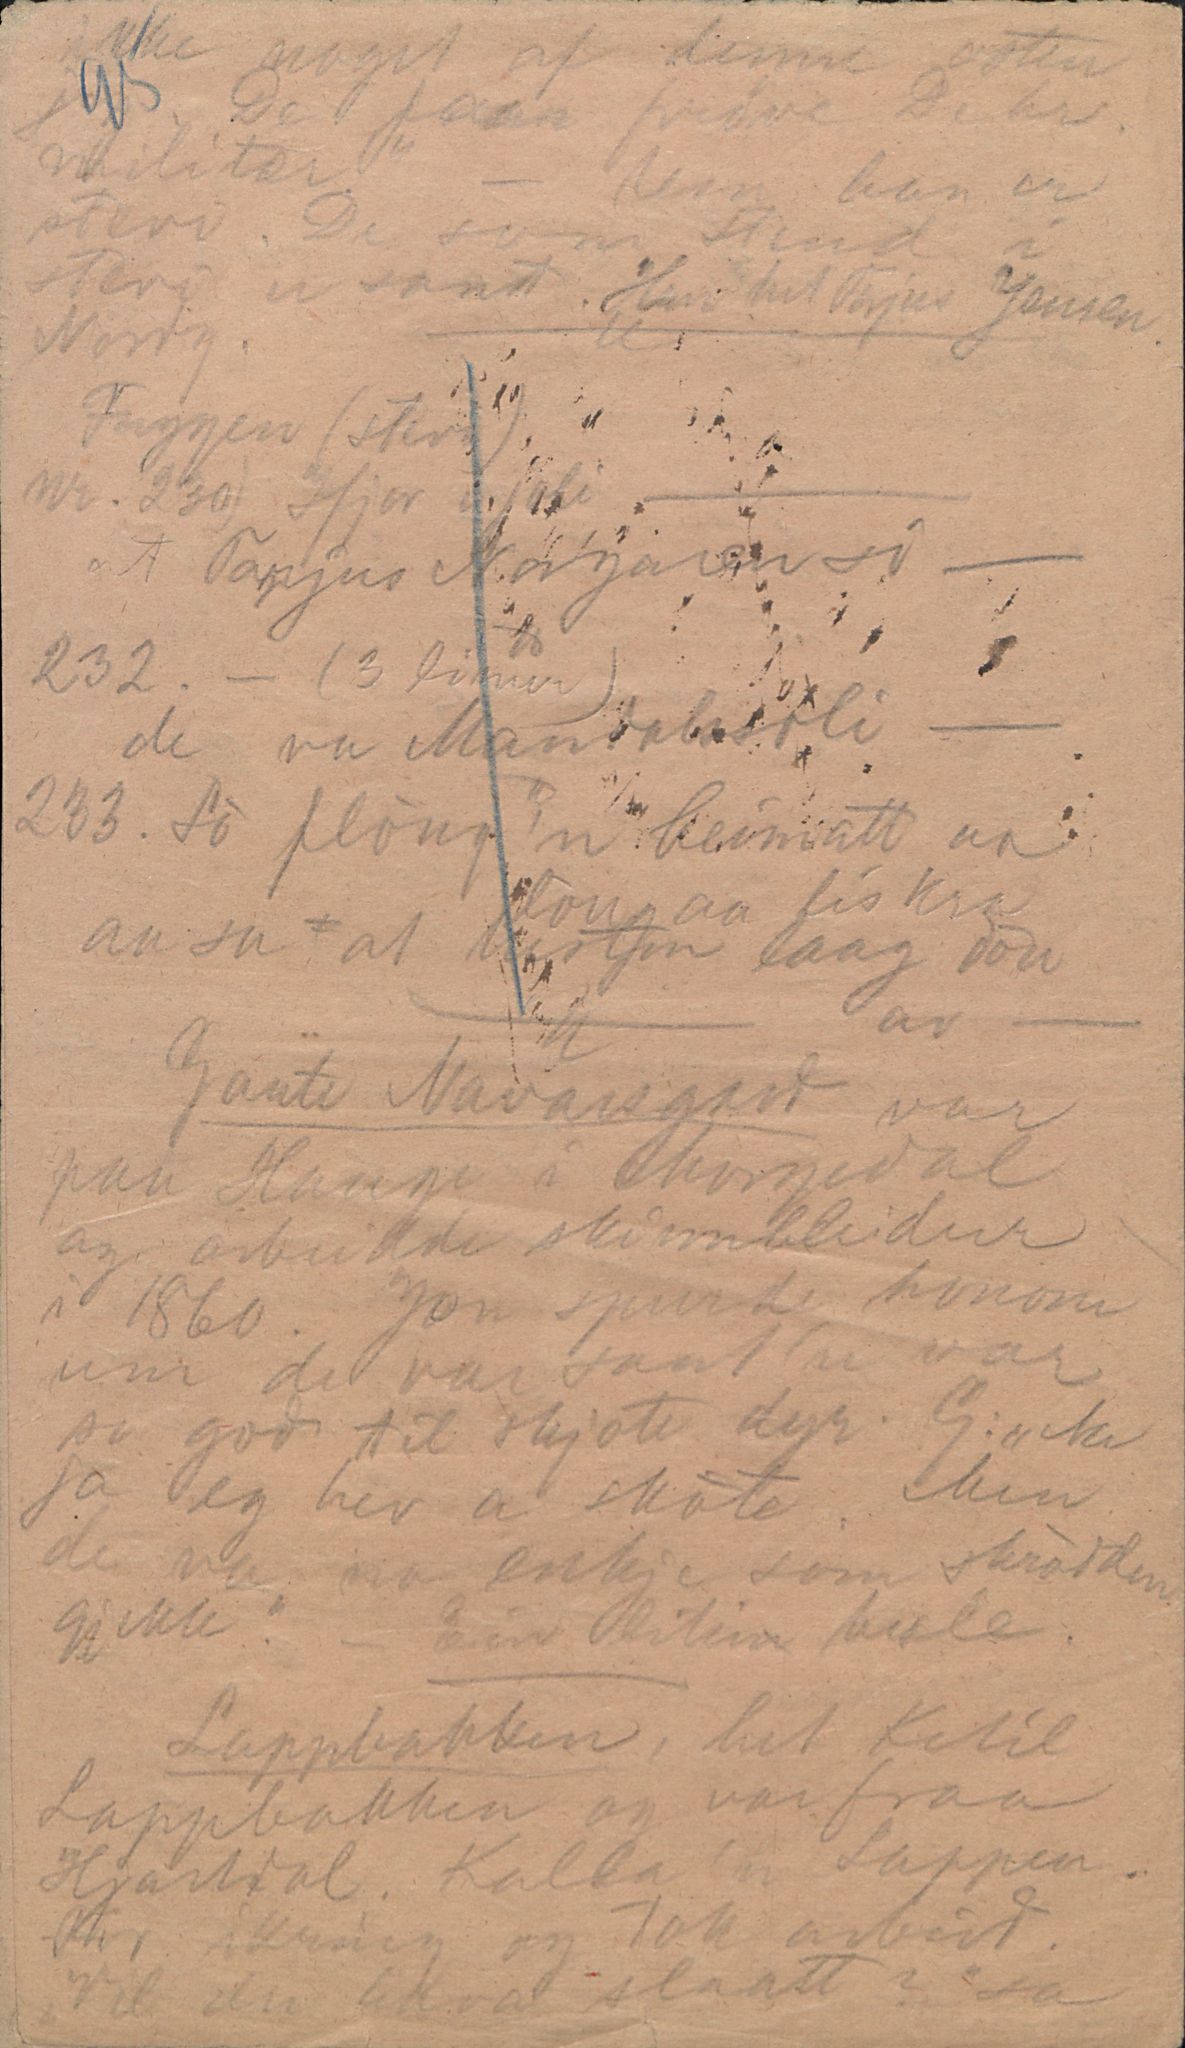 ikke noget af denne osten
95
De faaa prøve De hr.
militær." — han er
stevi. De som stend i
stevi er sant. Han het Tarjus Jensen
Nordg.
Tuggen (stev)
nr. 230) Ifjor i joli —
at Tarjus Nordgaren så —
232. — (3 linur)
de va Mandalsoli —
233. So flòug 'n heimatt aa
aa sa at laag don
av —
Gaute Navarsgard var
paa Hauge i Morgedal
og arbeidde skinnkleidur
i 1860. Jon spurde honom
um de var sant 'n var
so god til skjote dyr. G:
Ja eg hev a skòte. Men
de va no inkje som skròdden
gjekk". — Ein liten kule.
Lappbakken, het Ketil
Lappbakken og var fraa
Hjartdal. Kalla 'n Lappen.
For ikring og tok arbeid.
"Vil du hava slaatt?" sa